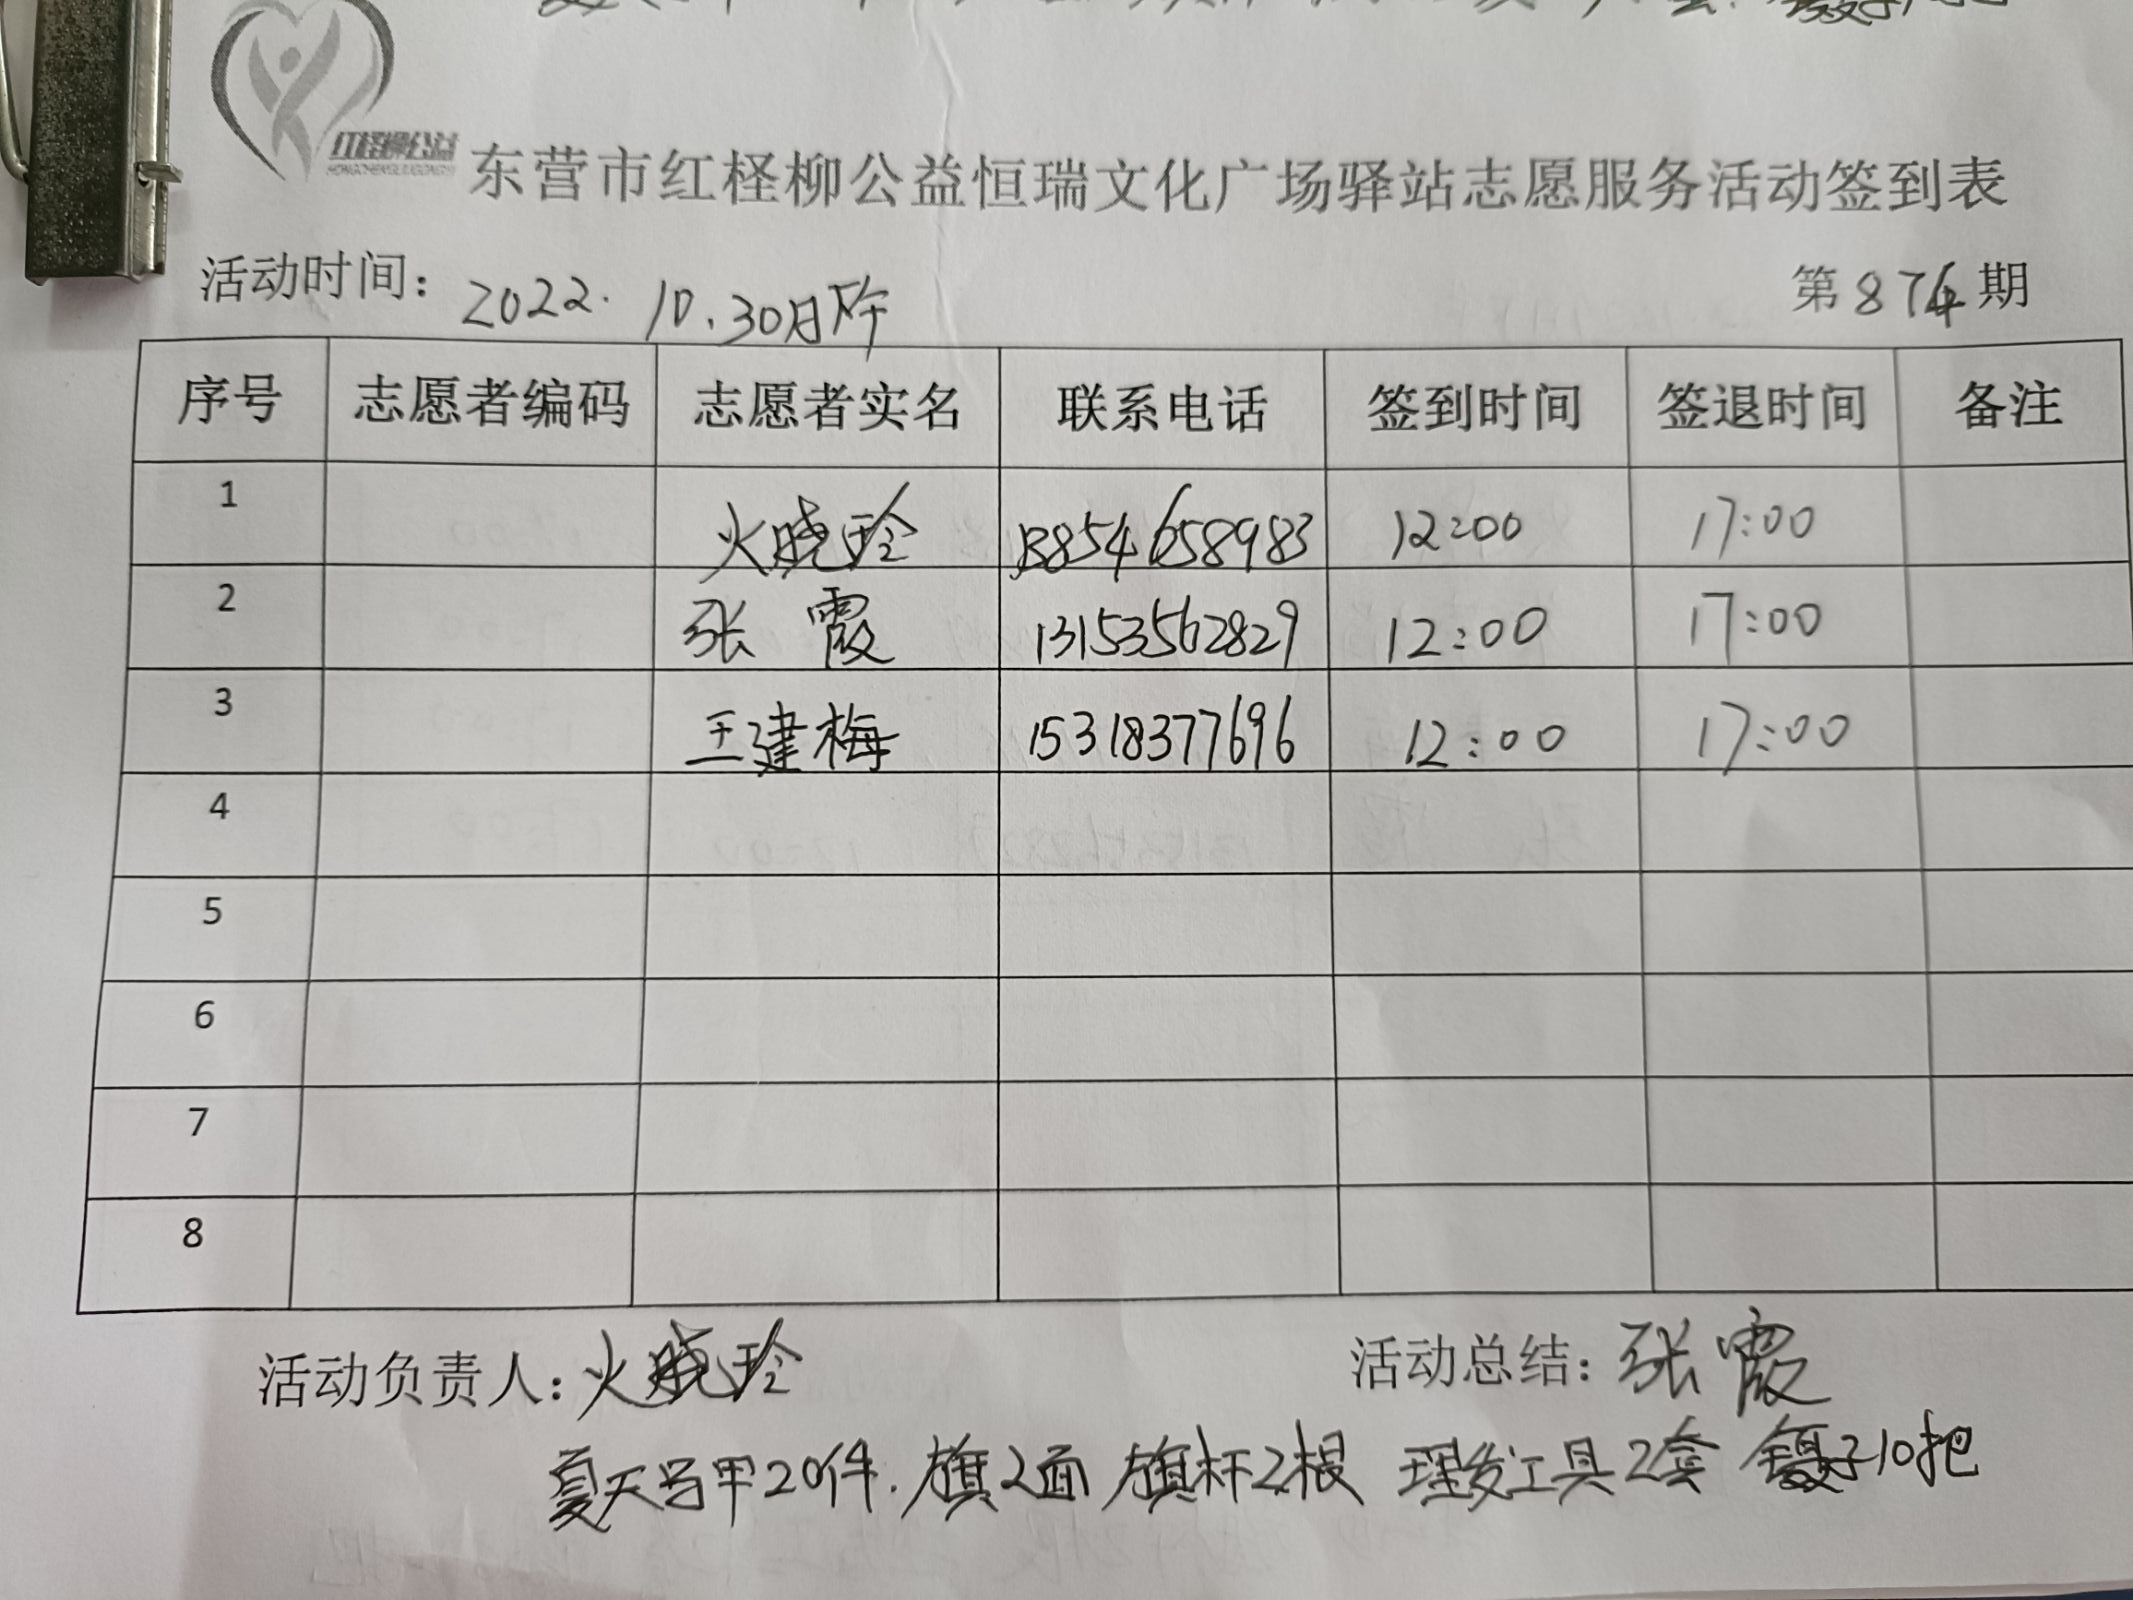 红柽柳公益
东营市红柽柳公益恒瑞文化广场驿站志愿服务活动签到表
活动时间：2022.10.30日下午 第874期
序号 志愿者编码 志愿者实名 联系电话 签到时间 签退时间 备注
1 火晓玲 13854658983 12:00 17:00
2 张霞 13153562829 12:00 17:00
3 王建梅 15318377696 12:00 17:00
4
5
6
7
8
活动负责人：火晓玲 活动总结：张霞
夏天马甲20件.旗2面 旗杆2根 理发工具2套 镊子10把